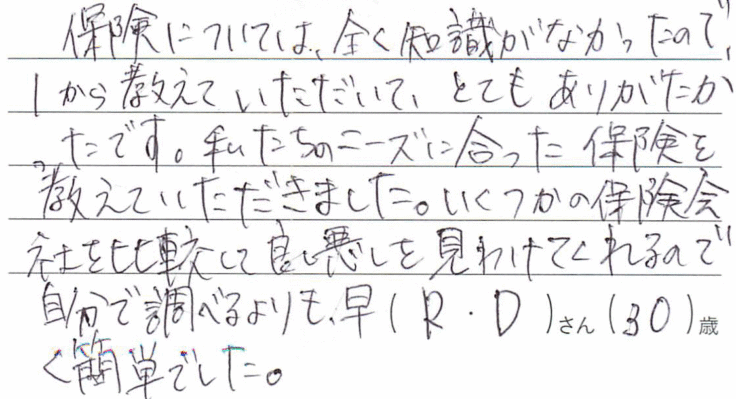 保険については、全く知識がなかったので、
1から教えていただいて、とてもありがたかっ
たです。私たちのニーズに合った保険を
教えていただきました。いくつかの保険会
社を比較して良し悪しを見わけてくれるので
自分で調べるよりも、早(R・D)さん(30)歳
く簡単でした。